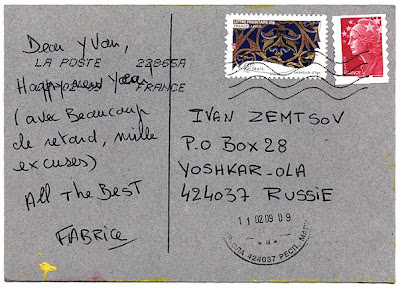 Dear Yvan,
LA POSTE 22855A
Happy new Year
FRANCE
(avec Beaucoup
de retard, mille
excuses)
All The Best
FABRICE
FRANCE
IVAN ZEMTSOV
P.O BOX 28
YOSHKAR-OLA
424037 RUSSIE
11 02 09 09
424037 РЕСП.